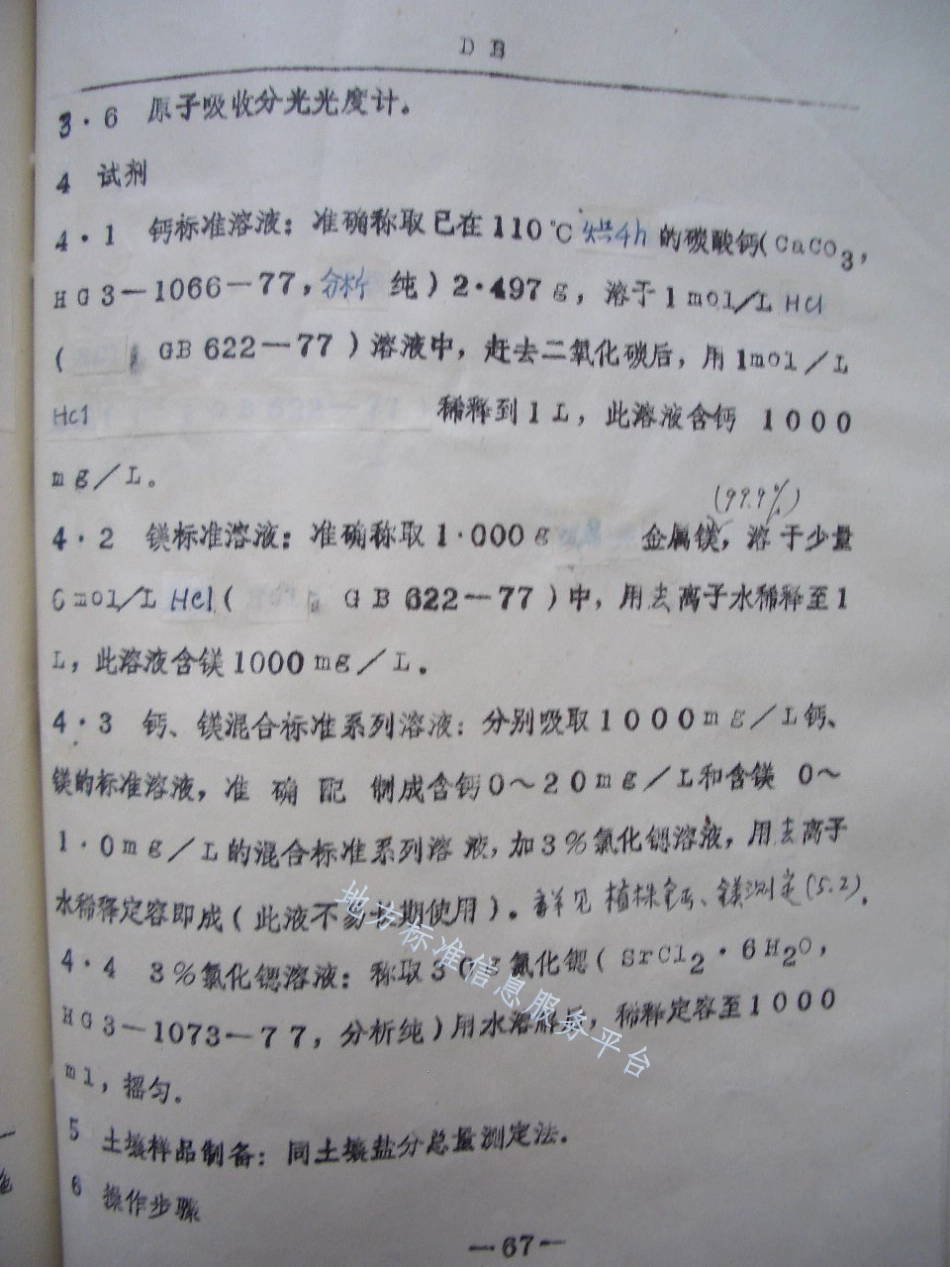 DB
3·6 原子吸收分光光度计。
4 试剂
4·1 钙标准溶液：准确称取已在110℃烘4h的碳酸钙(CaCO3，
HG3—1066—77，分析纯)2·497g，溶于1mol/L HCl
( GB 622—77)溶液中，赶去二氧化碳后，用1mol/L
HCl 稀释到1L，此溶液含钙 1000
mg/L。
(99.9%)
4·2 镁标准溶液：准确称取1·000g 金属镁，溶于少量
6mol/L HCl( GB 622—77)中，用去离子水稀释至1
L，此溶液含镁1000mg/L。
4·3 钙、镁混合标准系列溶液：分别吸取1000mg/L钙、
镁的标准溶液，准确配制成含钙0～20mg/L和含镁 0～
1·0mg/L的混合标准系列溶液，加3%氯化锶溶液，用去离子
水稀释定容即成(此液不易长期使用)。详见植株钙、镁测定(5.2)。
4·4 3%氯化锶溶液：称取30g氯化锶(SrCl2·6H2O，
HG3—1073—77，分析纯)用水溶解后，稀释定容至1000
ml，摇匀。
5 土壤样品制备：同土壤盐分总量测定法。
6 操作步骤
—67—
地方标准信息服务平台